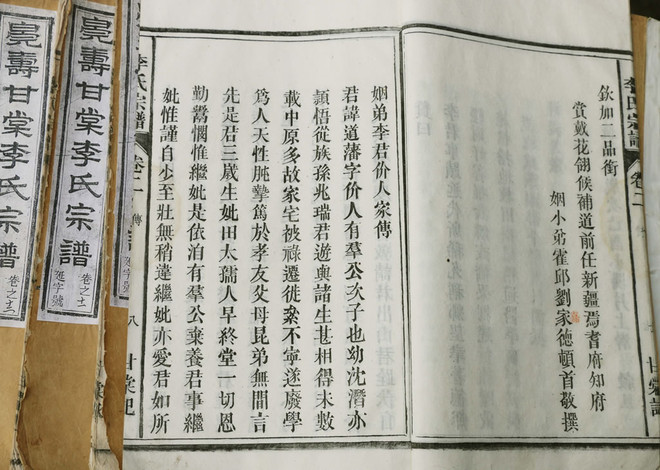 李氏宗譜
卷二
甘棠
欽加二品銜
賞戴花翎候補道前任新疆焉耆府知府
姻小弟霍邱劉家德頓首敬撰
姻弟李君价人家傳
君諱道藩字价人有羣公次子也幼沈潛亦
頴悟從族孫兆瑞君遊與諸生甚相得未數
載中原多故家宅被祲遷徙不寧遂廢學
爲人天性肫摯篤於孝友父母昆弟無間言
先是君三歲生妣田太孺人早終堂一切恩
勤鬻憫惟繼妣是依洎有羣公棄養君事繼
妣惟謹自少至壯無稍違繼妣亦愛君如所
李氏宗譜
卷二
傳
八
甘棠
亳壽甘棠李氏宗譜
卷之十
字號
亳壽甘棠李氏宗譜
卷之十
字號